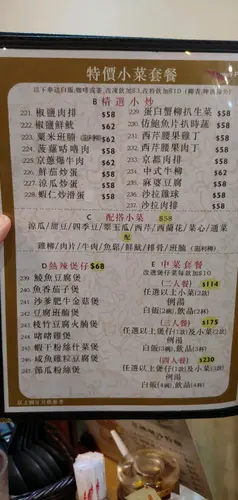 特價小菜套餐
以下奉送白飯,咖啡或茶,改凍飲加$3,改粉飯加$10
B 精選小炒
221. 椒鹽肉排 $58
222. 椒鹽鮮魷 $62
223. 粟米斑腩 $58
224. 菠蘿咕嚕肉 $58
225. 京蔥爆牛肉 $62
226. 鮮茄炒蛋 $58
227. 涼瓜炒蛋 $58
228. 蝦仁炒滑蛋 $58
229. 蛋白蟹柳扒生菜 $58
230. 仿鮑魚片扒時蔬 $58
231. 西芹腰果雞丁 $58
232. 西芹腰果肉丁 $58
233. 京都肉排 $58
234. 中式牛柳 $62
235. 麻婆豆腐 $58
236. 沙拉雞球 $58
237. 沙拉班球 $58
C 配搭小菜 $58
涼瓜/甜豆/四季豆/翠玉瓜/西芹/西蘭花/菜心/通菜
配
雞柳/肉片/牛肉/魚鬆/鮮魷/排骨/班腩
D 熱辣煲仔 $68
239. 鯪魚豆腐煲
240. 魚香茄子煲
241. 沙爹肥牛金菇煲
242. 豆腐班腩煲
243. 枝竹豆腐火腩煲
244. 啫啫雞煲
245. 蝦干粉絲什菜煲
246. 咸魚雞粒豆腐煲
247. 節瓜粉絲煲
E 中菜套餐
改選煲仔菜每款加$10
(二人餐) $114
任選以上小菜(2款)
例湯
白飯(2碗),飲品(2杯)
(三人餐) $175
任選以上煲仔(1款)
例湯
白飯(3碗),飲品(3杯)
(四人餐) $230
任選以上煲仔
例湯
白飯(4碗),飲品(4杯)
以上圖片只供參考